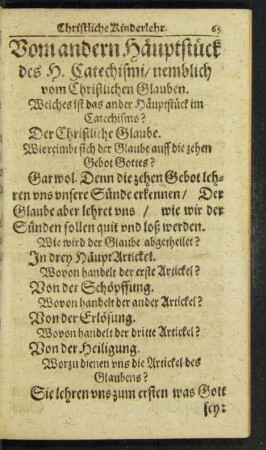 Christliche Kinderlehr. 65
Vom andern Häuptstück
des H. Catechismi/ nemblich
vom Christlichen Glauben.
Welches ist das ander Häuptstück im
Catechismo?
Der Christliche Glaube.
Wie reimbt sich der Glaube auff die zehen
Gebot Gottes?
Gar wol. Denn die zehen Gebot leh-
ren vns vnsere Sünde erkennen/ Der
Glaube aber lehret vns / wie wir der
Sünden sollen quit vnd loß werden.
Wie wird der Glaube abgetheilet?
In drey HäuptArtickel.
Wovon handelt der erste Artickel?
Von der Schöpffung.
Wovon handelt der ander Artickel?
Von der Erlösung.
Wovon handelt der dritte Artickel?
Von der Heiligung.
Worzu dienen vns die Artickel des
Glaubens?
Sie lehren vns zum ersten was Gott
sey: